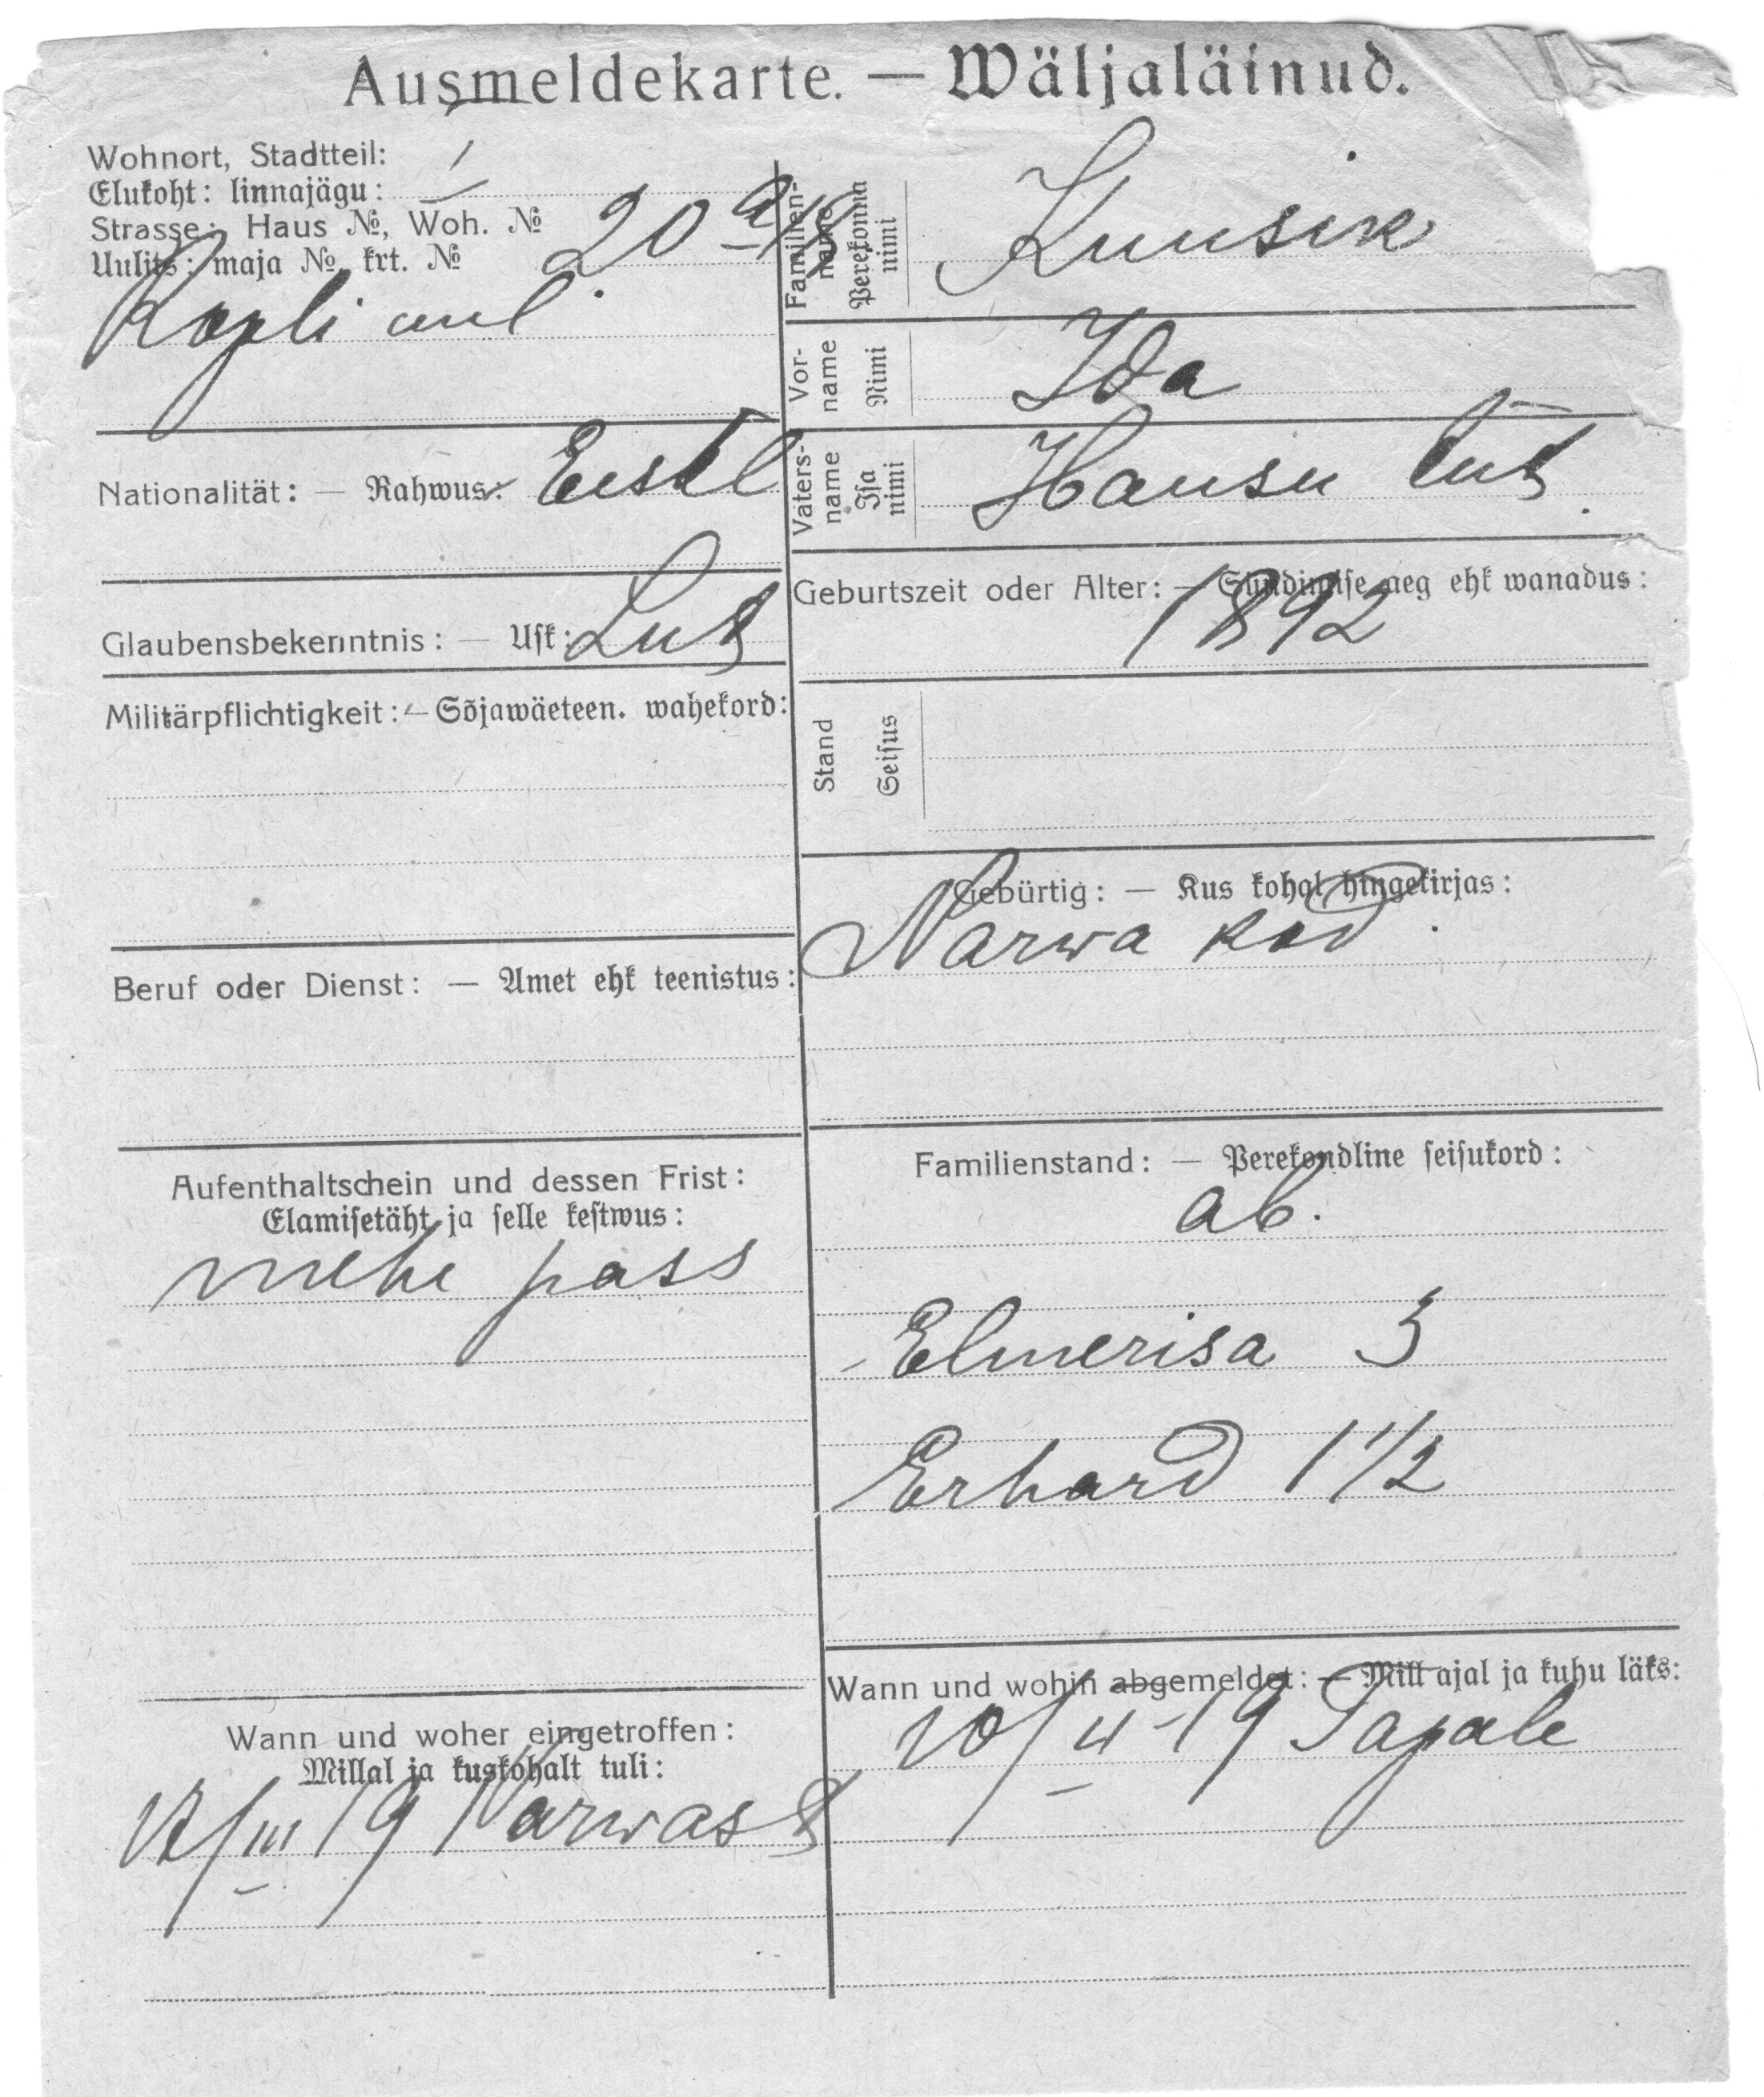 Ausmeldekarte. — Wäljaläinud.
Wohnort, Stadtteil: I
Elukoht: linnajägu:
Strasse: Haus №, Woh. №
Uulits: maja № krt. №
20 a/
Kopli uul.
Nationalität: — Rahwus: Eestl
Glaubensbekenntnis: — Usk: Lut
Militärpflichtigkeit: — Sõjawäeteen. wahekord:
Beruf oder Dienst: — Amet ehk teenistus:
Aufenthaltschein und dessen Frist:
Elamisetäht ja selle kestwus:
mehe pass
Wann und woher eingetroffen:
Millal ja kuskohalt tuli:
/III 19 Narwast
Familien-
name
Perekonna
nimi
Kuusik
Vor-
name
Nimi
Ida
Vaters-
name
Isa
nimi
Hansu tüt.
Geburtszeit oder Alter: — Sündimise aeg ehk wanadus:
1892
Stand
Seisus
Gebürtig: — Kus kohal hingekirjas:
Narwa kod.
Familienstand: — Perekondline seisukord:
ab.
Elmerisa 3
Erhard 1 1/2
Wann und wohin abgemeldet: — Mill ajal ja kuhu läks:
10/4-19 Tapale